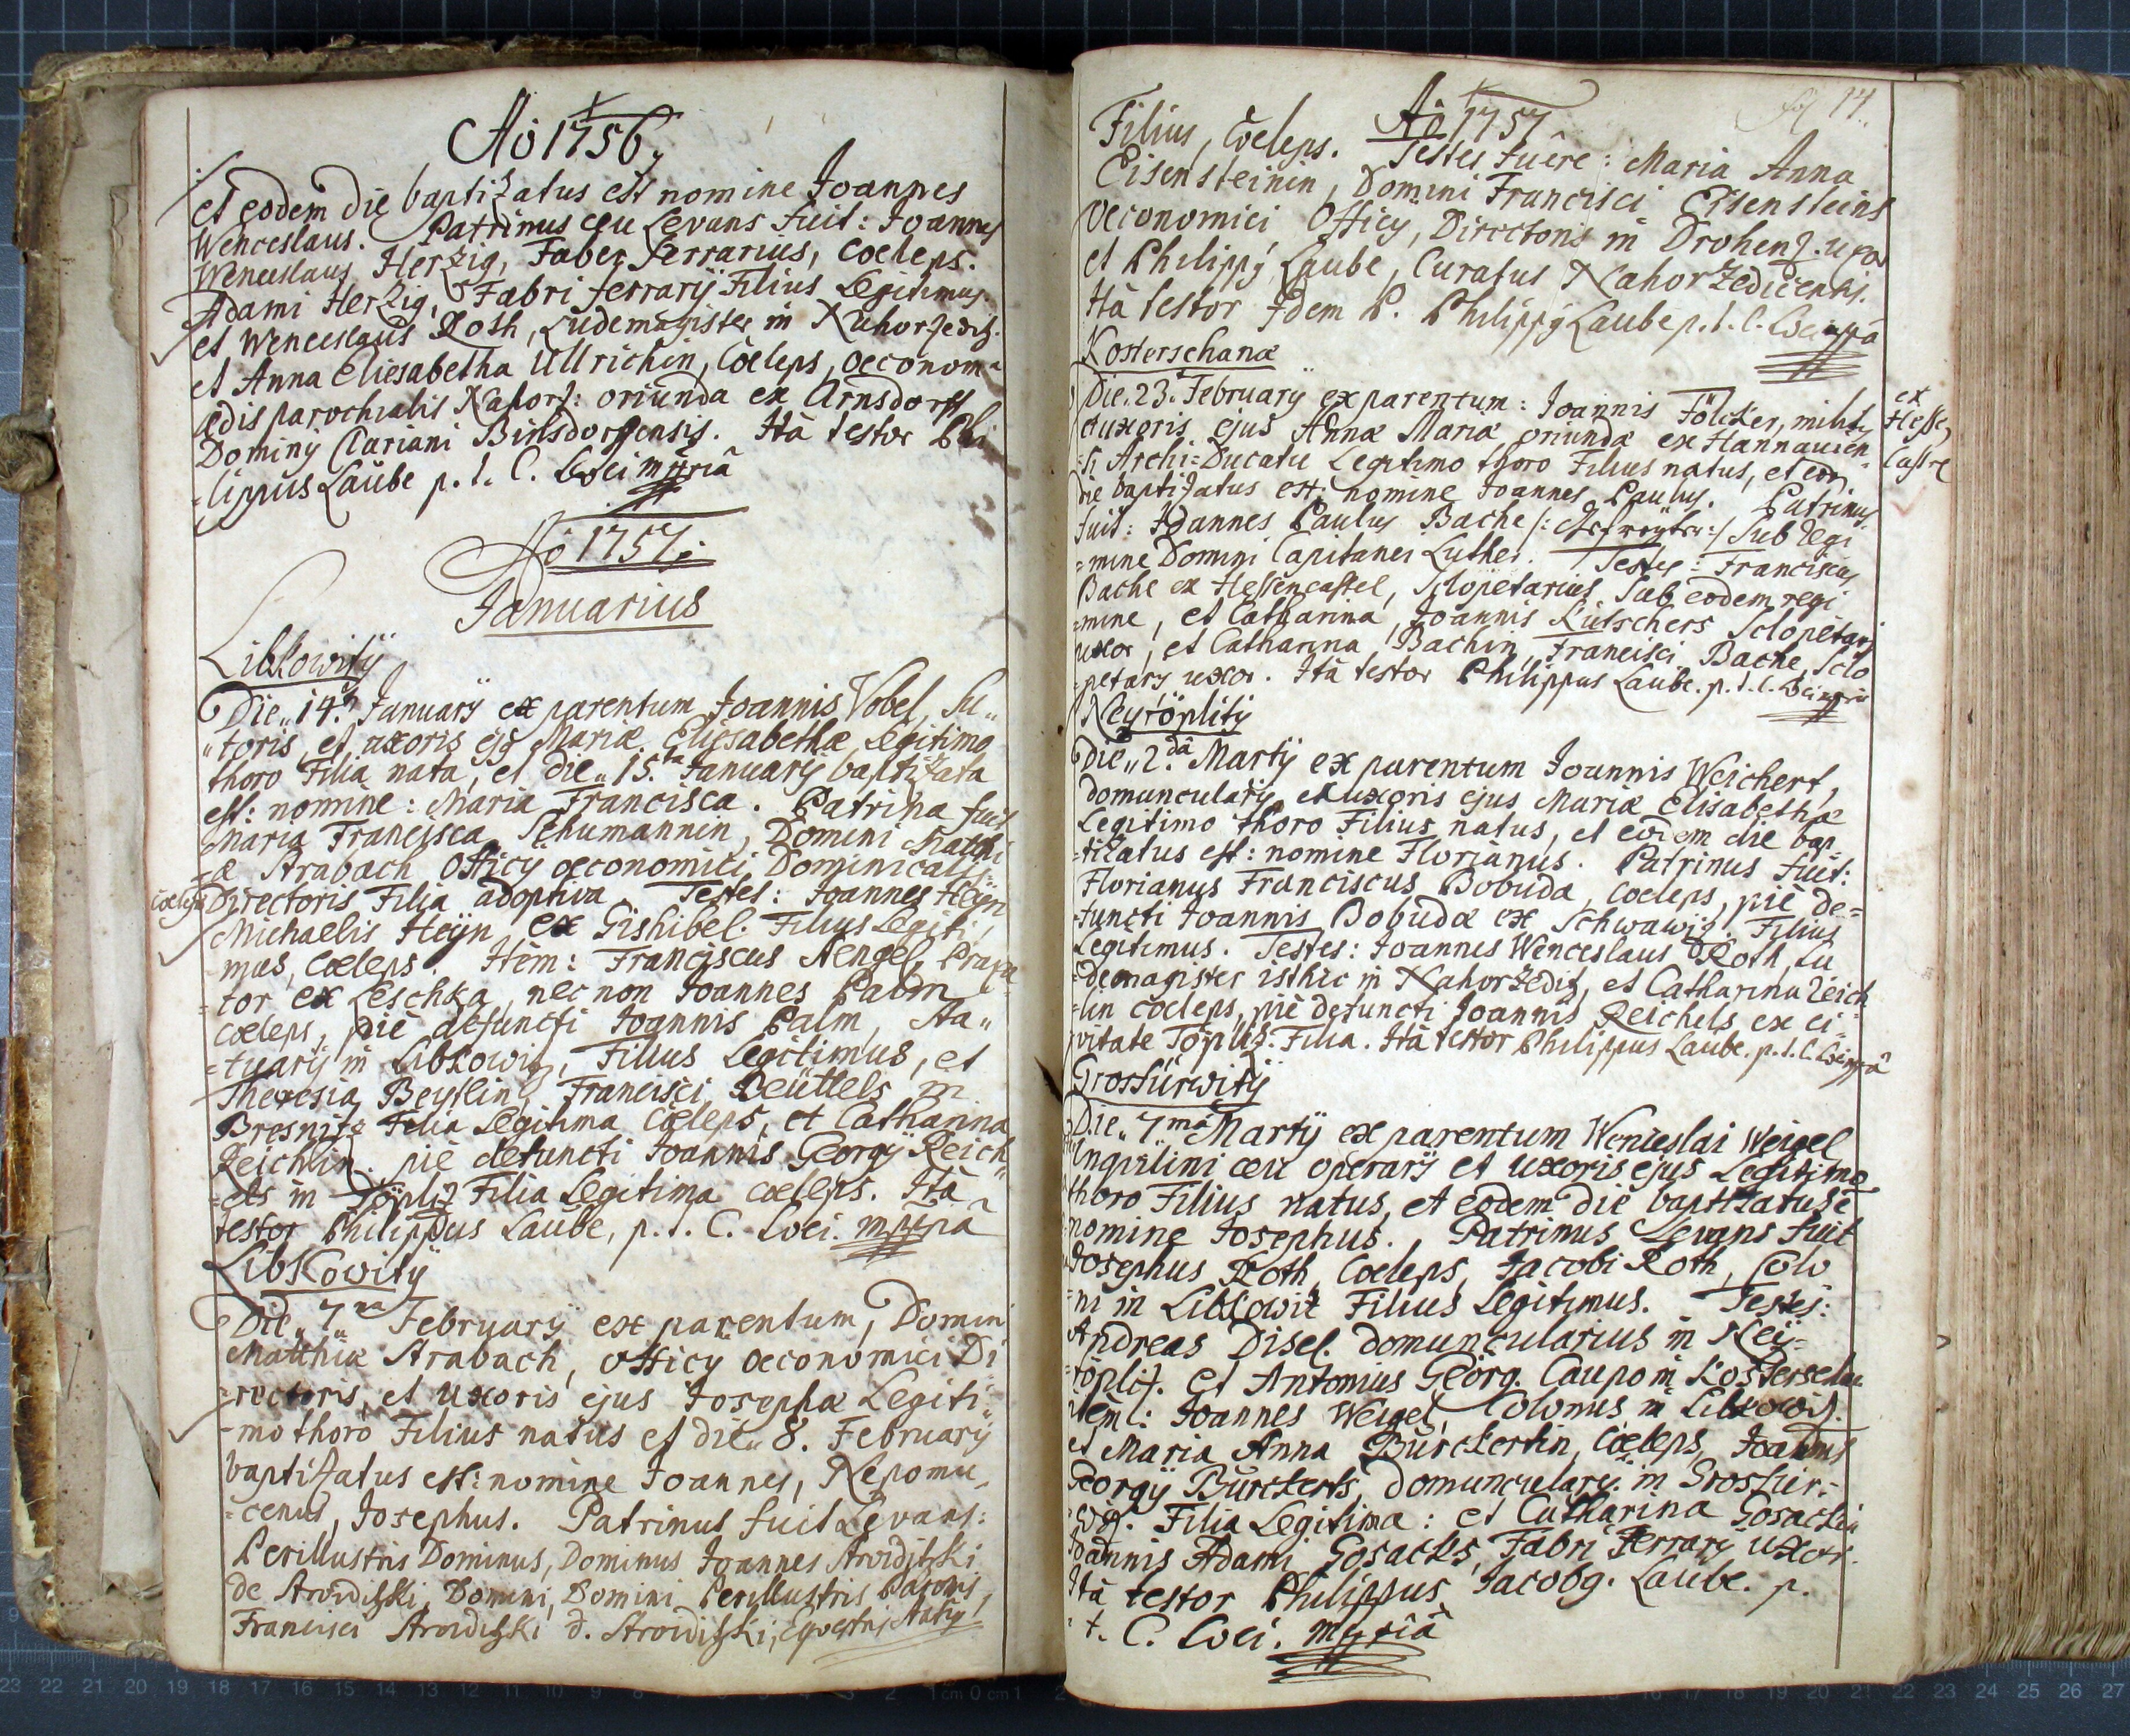 Aô 1756.
et eodem die baptizatus est nomine Joannes
Wenceslaus. Patrinus ceu Levans fuit: Joannes
Wenceslaus Herzig, Faber ferrarius, coeleps.
Adami Herzig, Fabri ferrarÿ Filius Legitimus.
et Wenceslaus Roth, Ludemagister in
et Anna Eliesabetha Ullrichin, Coeleps, oeconoma
ædis parochialis Nahorz: oriunda ex Arnsdorff
Dominÿ Clariani Binsdorffensis. Ità testor Phi
-lippus Laube p. t. C. Loci mppriâ
Aô 1757.
Januarius
Libkowitz
Die„ 14. Januarÿ ex parentum Joannis Vobel, Su„
„toris, et uxoris ejg Mariæ Eliesabethæ Legitimo
thoro Filia nata, et die„ 15.ta Januarÿ baptizata
est: nomine: Maria Francisca. Patrina fuit
Maria Francisca Schumannin, Domini Matthi
-æ Arabach Officÿ oeconomici Dominicalis
Directoris Filia adoptiva Testes: Joannes Heÿn
coeleps
Michaelis Heÿn ex Gishibel. Filius Legiti,
mus, coeleps. Item: Franciscus Nengel,
-tor ex Leschka, nec non Joannes Palm
coeleps, piè defuncti Joannis Palm, Sta„
-tuarÿ in Libkowitz, Filius Legitimus, et
Theresia Beÿtlin Francisci Beüttels in
Bresnitz Filia Legitima Coeleps, et Catharina
Reichlin. piè defuncti Joannis Georgÿ Reich„
-els in Töplitz Filia Legitima coeleps. Ità
testor Philippus Laube, p. t. C. Loci. mppriâ
LibKowitz
Die„ 7„ma Februarÿ ex parentum, Domini
Matthiæ Arabach, officÿ oeconomici Di
-rectoris, et uxoris ejus Josephæ Legiti„
-mo thoro Filius natus et die„ 8. Februarÿ
baptizatus est: nomine Joannes, Nepomu„
-cenus, Josephus. Patrinus fuit Levans:
Perillustris Dominus, Dominus Joannes
de Domini, Domini Perillustris Baronis,
Francisci d. Equestris Statûs
fol 14.
Aô 1757
Filius, Coeleps. Testes fuêre: Maria Anna
Eisensteinin, Domini Francisci Eisensteins
oeconomici Officÿ, Directoris in Drohenz. uxor
et Philippÿ Laube, Curatus Nahorzedicensis.
Ità testor Idem P. Philippÿ Laube p. t. C. Loci mppriâ
Kosterschanæ
Die 23. Februarÿ ex parentum: Joannis Fölcker, militis
ex
Hesse,
Cassel
et uxoris ejus Annæ Mariæ oriunda ex Hannauien
-si Archi-Ducatu Legitimo thoro Filius natus, et eod.
die baptizatus est: nomine Joannes Paulus. Patrinus
fuit: Joannes Paulus Bache /: Gefreyter:/ Sub regi
-mine Domini Capitanei Luther. Testes: Franciscus
Bache ex Hessencassel, Sclopetarius Sub eodem regi
-mine, et Catharina, Joannis Kutschers Sclopetarÿ
uxor, et Catharina Bachin, Francisci Bache, Sclo
-petarÿ uxor. Ità testor Philippus Laube. p. t. C. Loci mppriâ
Neÿtöplitz
Die„ 2.dâ Martÿ ex parentum Joannis Weichert,
domuncularÿ, et uxoris ejus Mariæ Elisabethæ
Legitimo thoro Filius natus, et eodem die bap-
-tizatus est: nomine Florianus. Patrinus fuit:
Florianus Franciscus Bobuda, coeleps, piè de-
-functi Joannis Bobudæ ex Schwawiz. Filius
Legitimus. Testes: Joannes Wenceslaus Roth, Lu
-demagister isthic in Nahorzediz, et Catharina Reich
-lin coeleps, piè defuncti Joannis Reichels ex ci-
vitate Töplitz. Filia. Ità testor Philippus Laube. p. t. C. Loci mppriâ
Grosturwitz
Die„ 7„ma Martÿ ex parentum Wenceslai Weigel
Inquilini ceu operarÿ et uxoris ejus Legitimo
thoro Filius natus, et eodem die baptizatus ê
nomine Josephus. Patrinus Levans fuit
Josephus Roth, Coeleps, Jacobi Roth, Colo
-ni in Libkowit Filius Legitimus. Testes:
Andreas Disel. domuncularius in Neÿ-
-töplitz. et Antonius Georg. Caupo in Kosterschan
Item: Joannes Weigel, Colonus in Libkowiz.
et Maria Anna Burckertin, Coeleps, Joannis
Georgÿ Burckerts, domuncularÿ in Grostur-
-wiz. Filia Legitima: et Catharina Gosackin
Joannis Adami Gosacks, Fabri ferrarÿ uxor.
Ità testor Philippus Jacobg. Laube. p.
t. C. Loci. mppriâ